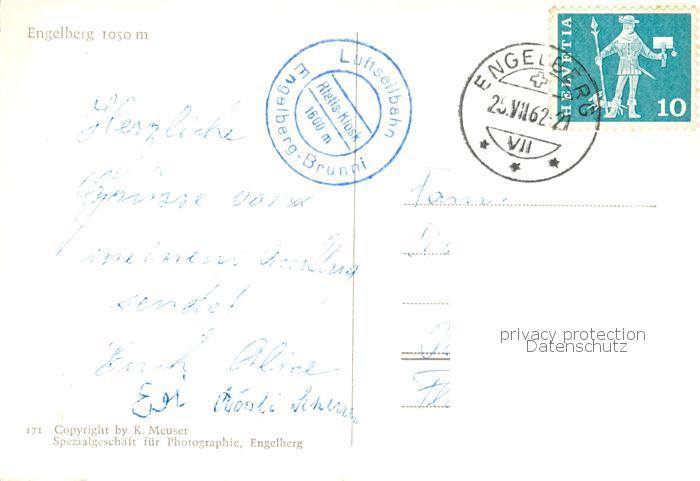 Engelberg 1050 m
Luftseilbahn
Engelberg-Brunni
Rietis-Kiosk
1600 m
ENGELBERG
25.VII.62-21
VII
HELVETIA
10
Herzliche
Grüsse vom
meinem Ausflug
sendet
Euch Alice
Rösli
Fam.
privacy protection
Datenschutz
171 Copyright by K. Meuser
Spezialgeschäft für Photographie, Engelberg